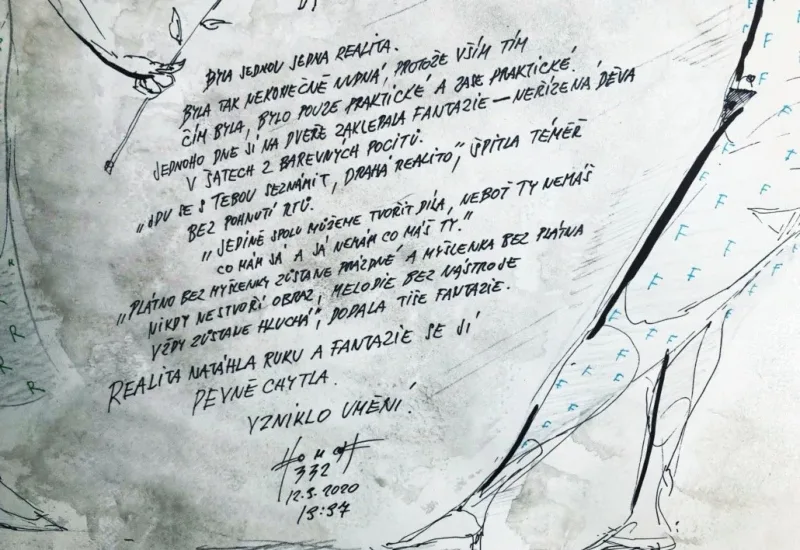 BYLA JEDNOU JEDNA REALITA.
BYLA TAK NEKONEČNĚ NUDNÁ, PROTOŽE VŠÍM TÍM
ČÍM BYLA, BYLO POUZE PRAKTICKÉ A ZASE PRAKTICKÉ.
JEDNOHO DNE JÍ NA DVEŘE ZAKLEPALA FANTAZIE – NEŘÍZENÁ DĚVA
V ŠATECH Z BAREVNÝCH POCITŮ.
„JDU SE S TEBOU SEZNÁMIT, DRAHÁ REALITO", ŠPITLA TÉMĚŘ
BEZ POHNUTÍ RTŮ.
„JEDINĚ SPOLU MŮŽEME TVOŘIT DÍLA, NEBOŤ TY NEMÁŠ
CO MÁM JÁ A JÁ NEMÁM CO MÁŠ TY."
„PLÁTNO BEZ MYŠLENKY ZŮSTANE PRÁZDNÉ A MYŠLENKA BEZ PLÁTNA
NIKDY NESTVOŘÍ OBRAZ, MELODIE BEZ NÁSTROJE
VŽDY ZŮSTANE HLUCHÁ", DODALA TIŠE FANTAZIE.
REALITA NATÁHLA RUKU A FANTAZIE SE JÍ
PEVNĚ CHYTLA.
VZNIKLO UMĚNÍ.
332
12.3.2020